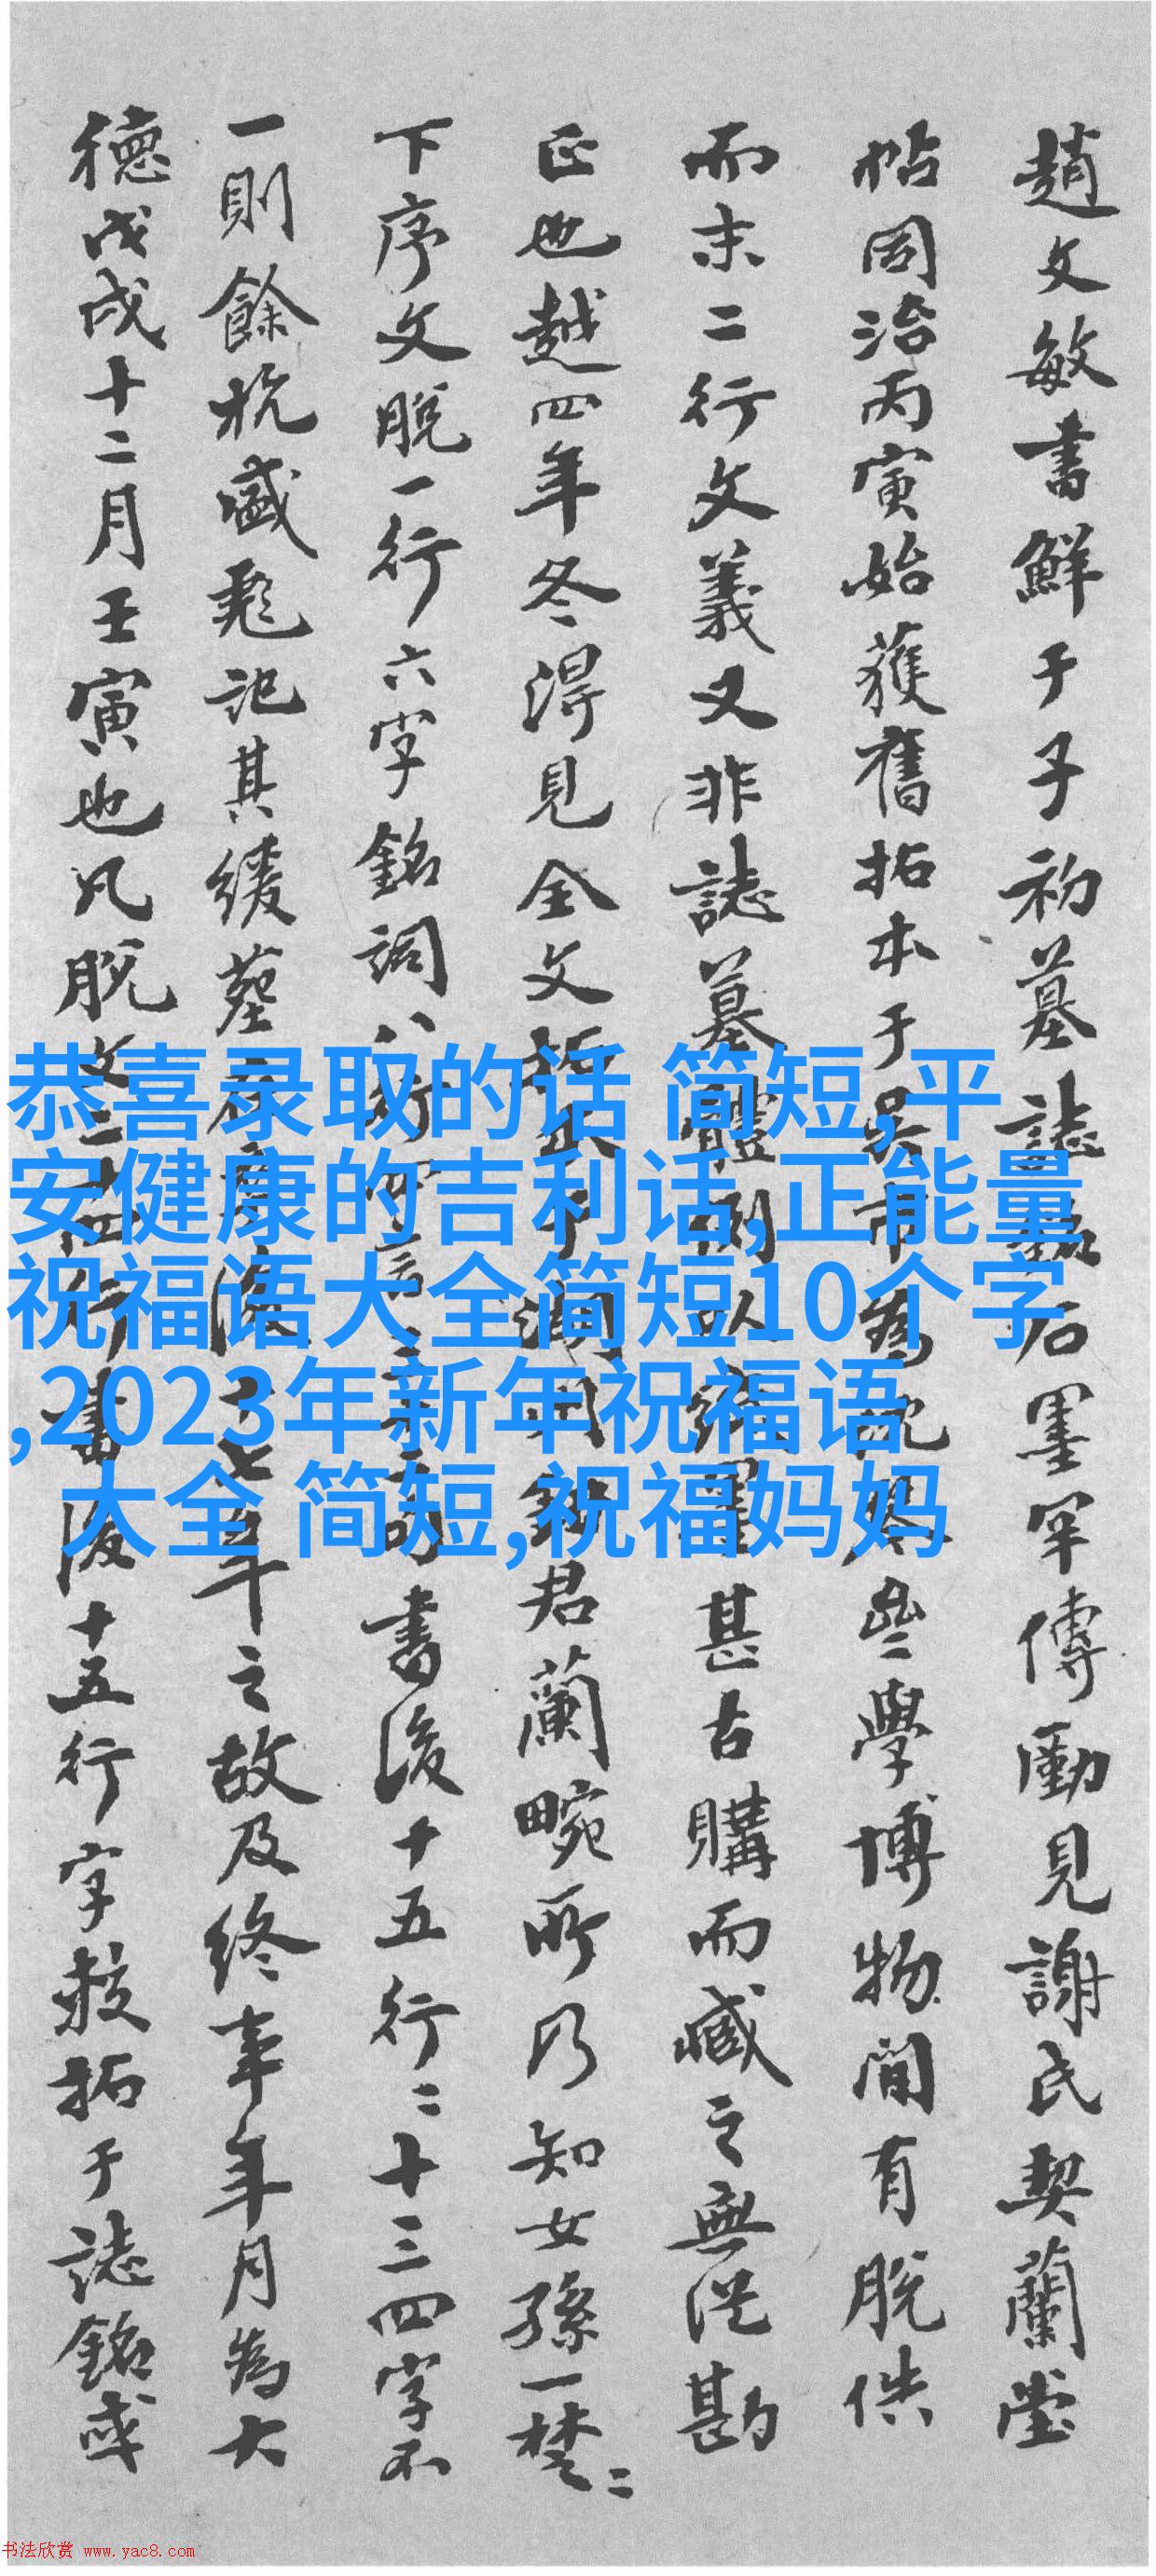 趙文敏書鮮于子初墓誌
石墨罕傳勵見謝氏契蘭堂
帖同治丙寅始獲舊拓本于吳市為
學博物間有脫佚
而末二行文義又非誌墓體例以
甚古購而臧之無從勘
正也越四年冬得見全文拓本
君蘭畹所乃知女孫一埜二
下序文脫一行六字銘詞八行四言
書後十五行二十三四字不
一則餘杭盛彪記其緩葬
年之故及終事年月為大
德戊戌十二月壬寅也凡脫文二十四行
書後十五行字數拓于誌銘或
恭喜录取的话 简短,平
安健康的吉利话,正能量
祝福语大全简短10个字
,2023年新年祝福语
大全 简短,祝福妈妈
书法欣赏 www.yac8.com